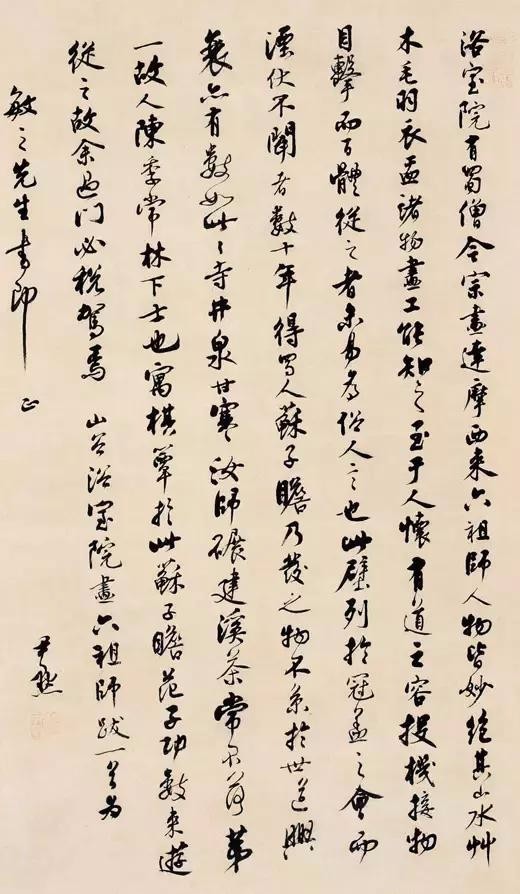 浴室院有蜀僧令宗畫達摩西来六祖師人物皆妙絕其山水艸
木毛羽衣盂諸物畫工能知之至于人懷有道之容投機接物
目擊而百體從之者未易為俗人言也此壁列於冠蓋之會而
湮伏不聞者數十年得蜀人蘇子瞻乃發之物不係於世道興
衰亦有數如此〻寺井泉甘寒汶師碾建溪茶常不落第
一故人陳季常林下士也寓棋簟於此蘇子瞻范子功數来遊
從之故余過門必稅駕焉 山谷浴室院畫六祖師跋一首為
敏之先生書即正
尹默